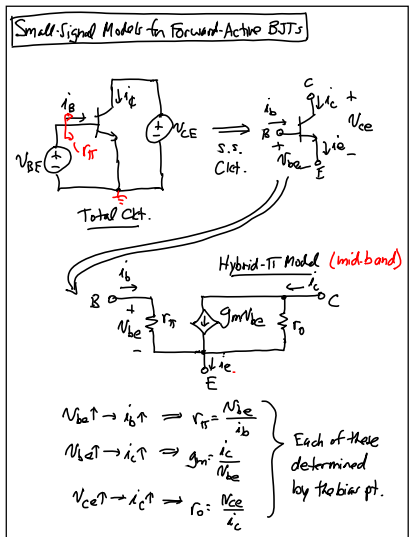 Small-Signal Models for Forward-Active BJTs
i_B
i_C
r_π
v_BE
v_CE
Total Ckt.
⇒
s.s.
Ckt.
C
i_b
i_c
+
v_ce
-
B
+
v_be
-
i_e
E
Hybrid-π Model (mid-band)
i_b
i_c
B
+
v_be
-
r_π
g_m v_be
r_o
C
i_e
E
v_be↑ → i_b↑ ⇒ r_π = v_be / i_b
v_be↑ → i_c↑ ⇒ g_m = i_c / v_be
v_ce↑ → i_c↑ ⇒ r_o = v_ce / i_c
Each of these
determined
by the bias pt.